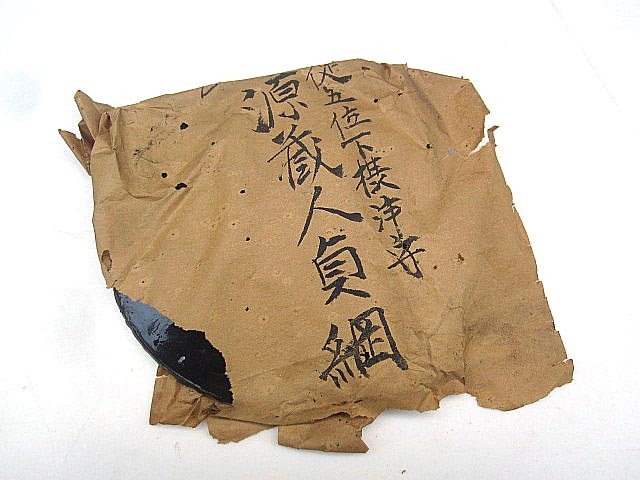 従五位下横浄寺
源蔵人貞綱